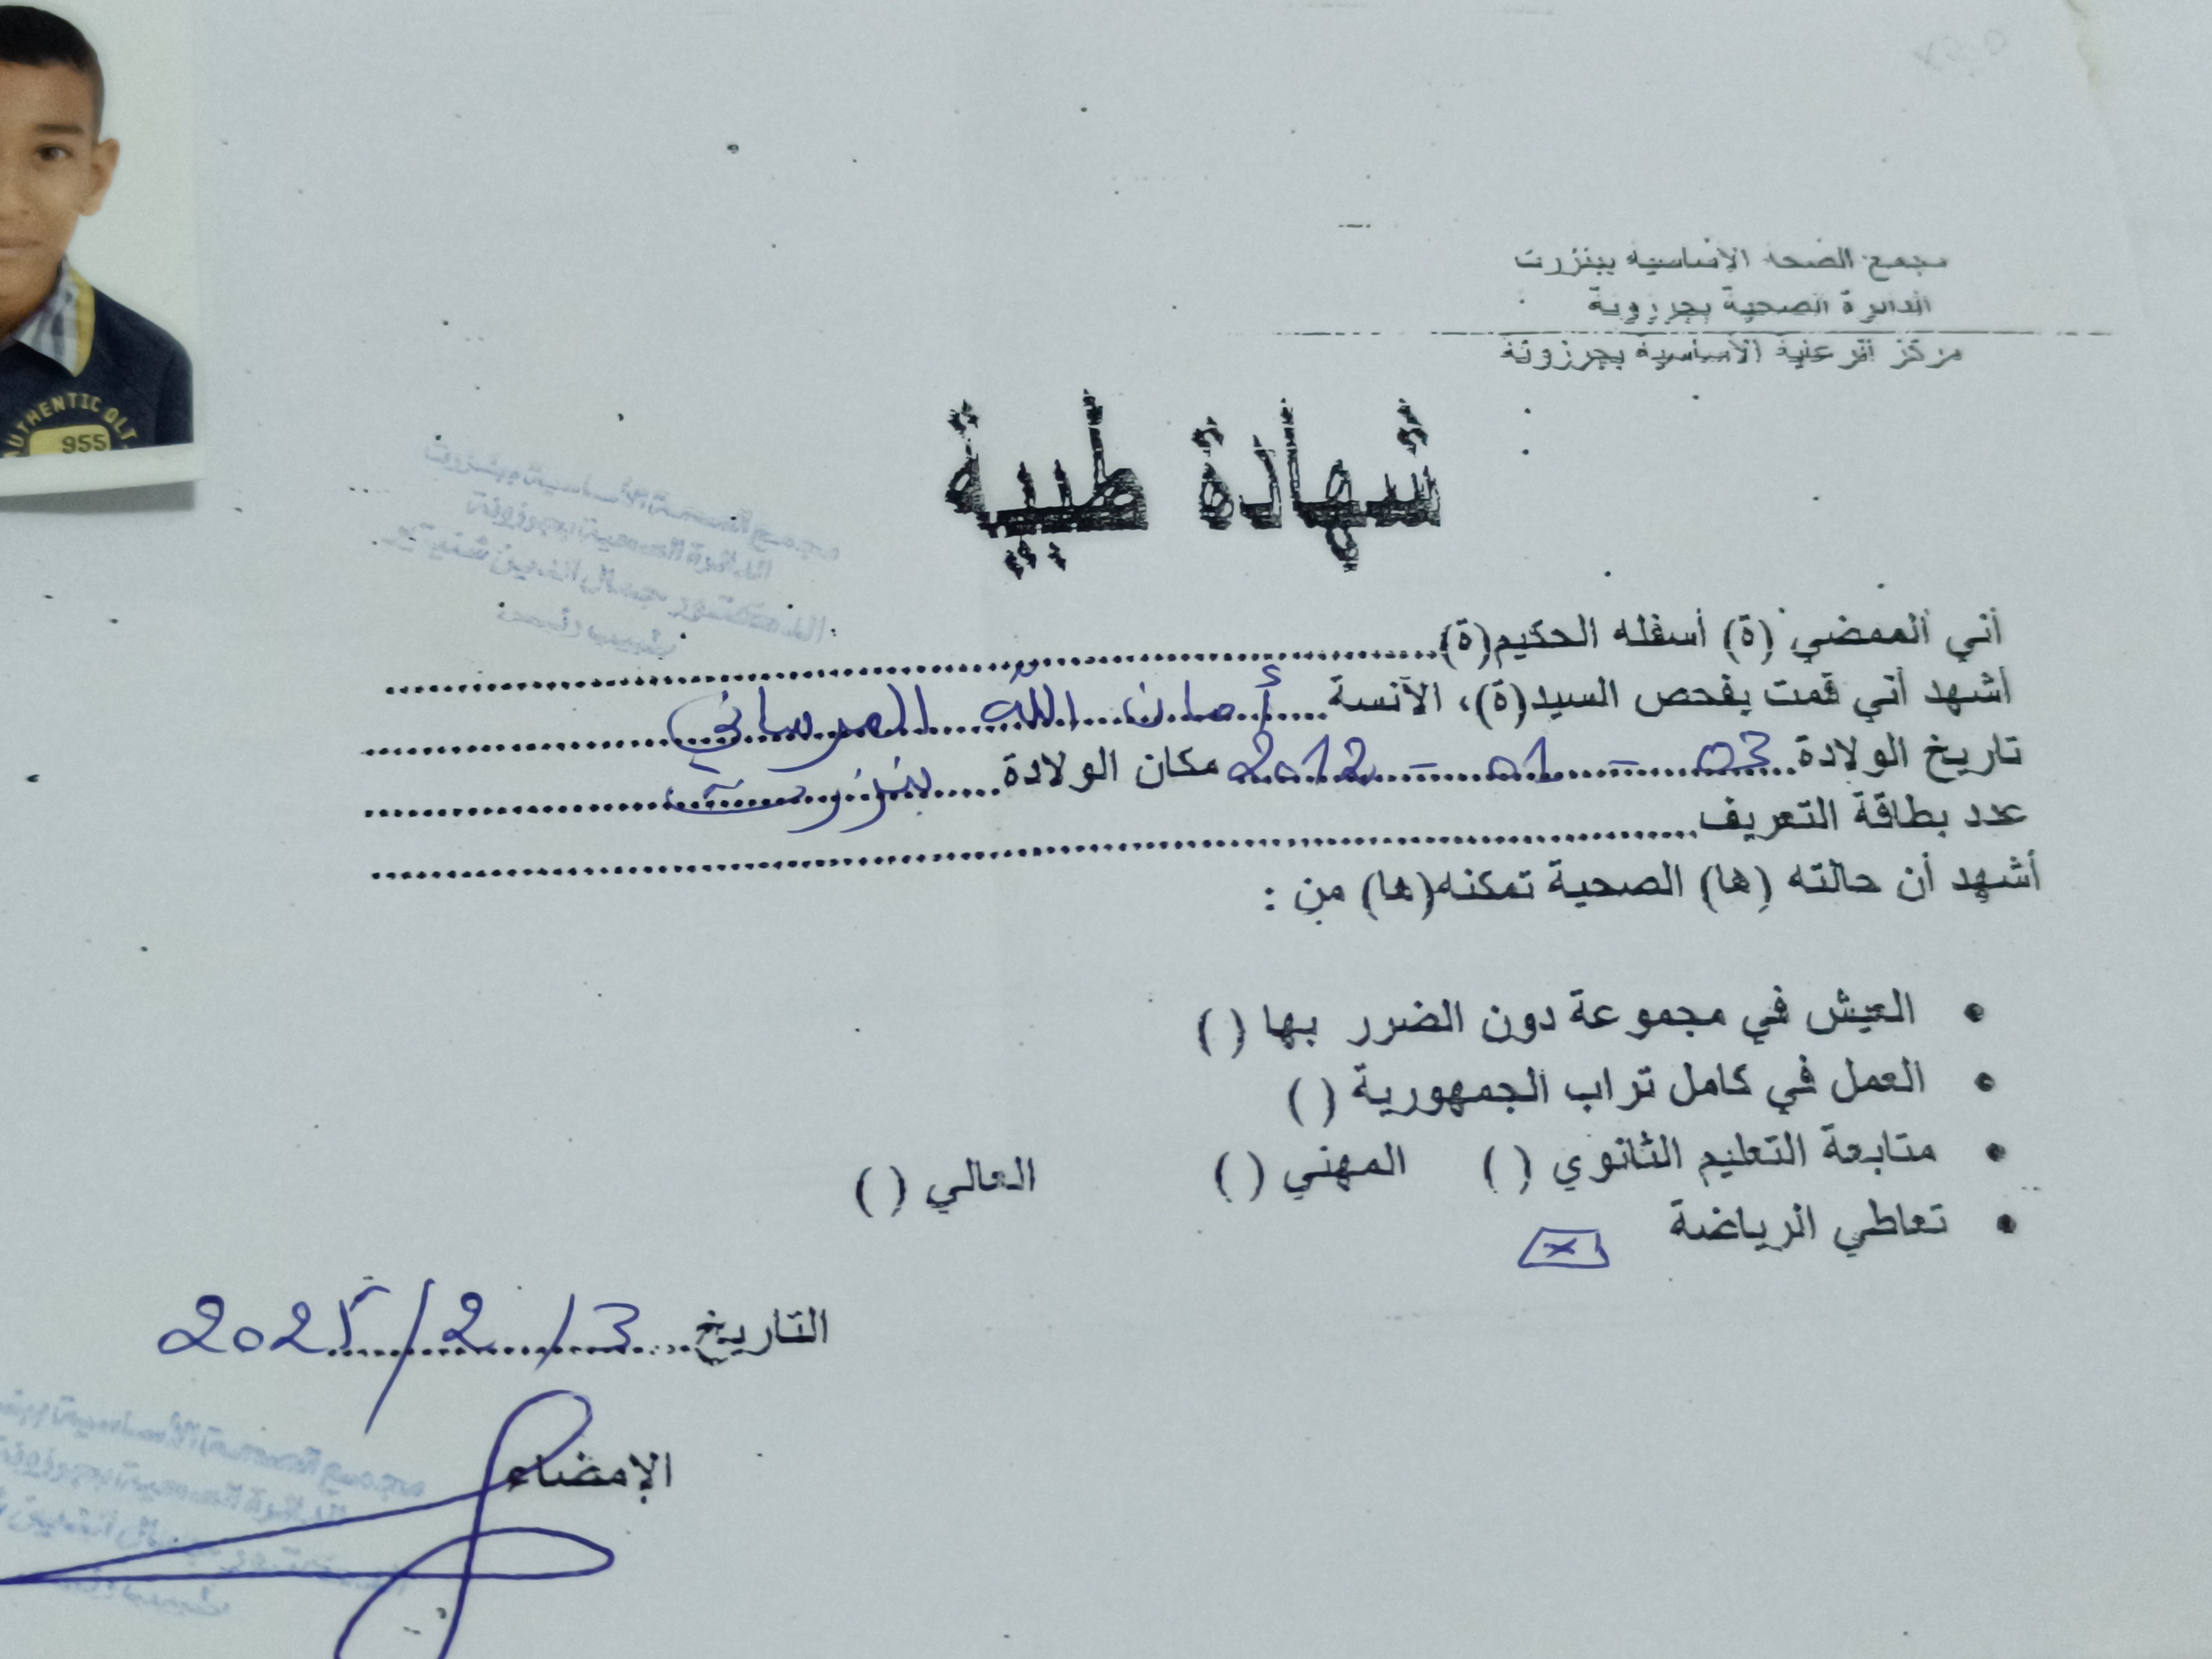 مجمع الصحة الإساسية ببنزرت
الدائرة الصحية بجرزونة
مركز الرعاية الأساسية بجرزونة
شهادة طبية
أني الممضي (ة) أسفله الحكيم(ة)
أشهد أني قمت بفحص السيد(ة)، الآنسة أمان الله المرساني
تاريخ الولادة 03 - 01 - 2012 مكان الولادة بنزرت
عدد بطاقة التعريف
أشهد أن حالته (ها) الصحية تمكنه(ها) من :
• العيش في مجموعة دون الضرر بها ( )
• العمل في كامل تراب الجمهورية ( )
• متابعة التعليم الثانوي ( ) المهني ( ) العالي ( )
• تعاطي الرياضة x
التاريخ 3 / 2 / 2025
الإمضاء
AUTHENTIC QLT
955